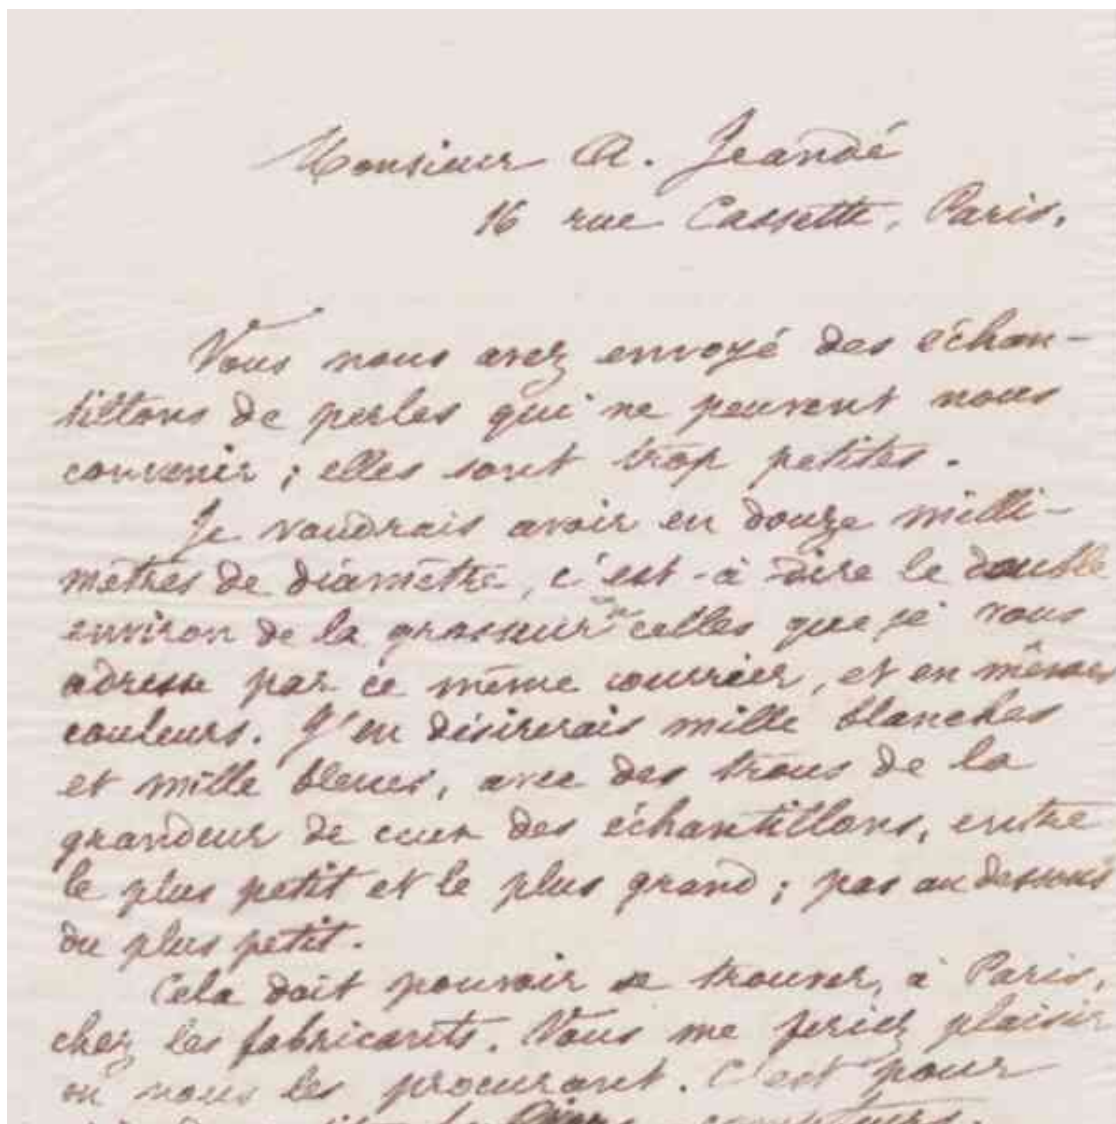 Monsieur A. Jeandé
16 rue Cassette, Paris.
Vous nous avez envoyé des échan-
tillons de perles qui ne peuvent nous
convenir ; elles sont trop petites.
Je voudrais avoir en douze milli-
mètres de diamètre, c'est-à-dire le double
environ de la grosseur de celles que je vous
adresse par ce même courrier, et en mêmes
couleurs. J'en désirerais mille blanches
et mille bleues, avec des trous de la
grandeur de ceux des échantillons, entre
le plus petit et le plus grand ; pas au dessous
du plus petit.
Cela doit pouvoir se trouver, à Paris,
chez les fabricants. Vous me feriez plaisir
en nous les procurant. C'est pour